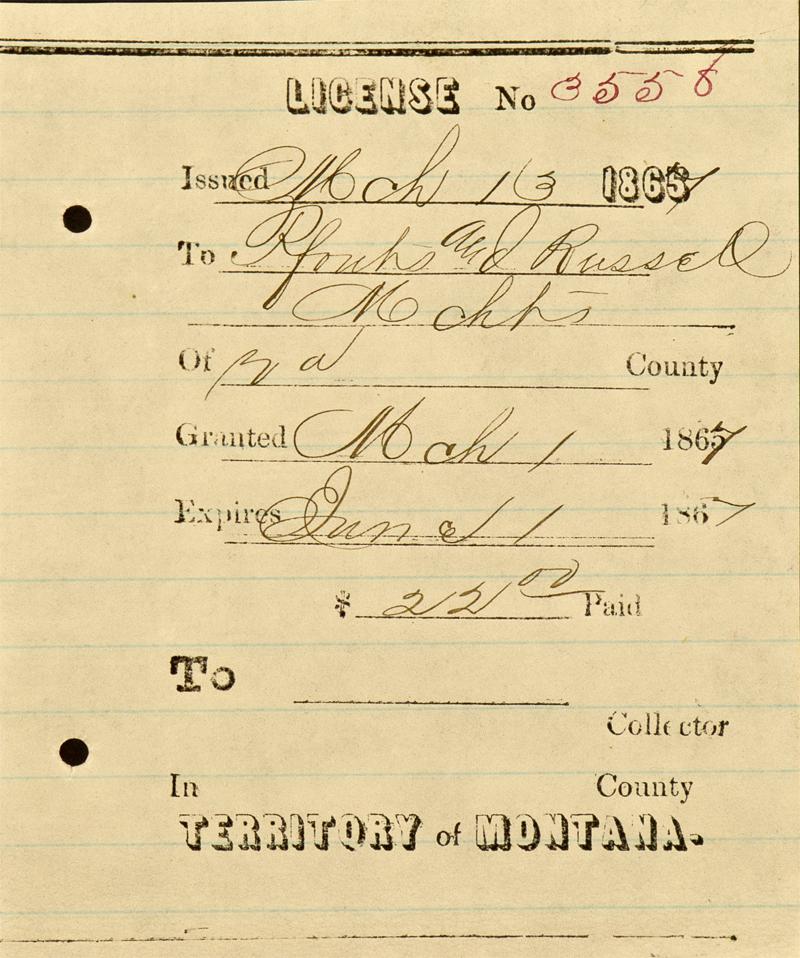 LICENSE No 3558
Issued Mch 13 1867
To Pfouts and Russell
Mchts
Of County
Granted Mch 1 1867
Expires June 1 1867
$ 22 00 Paid
To
Collector
In County
TERRITORY of MONTANA.